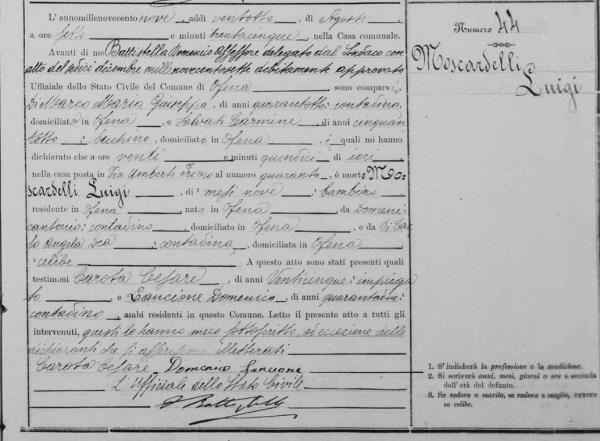 L'annomillenovecento nove, addì ventotto, di Agosto,
a ore sette e minuti trentacinque, nella Casa comunale.
Avanti di me Battistella Domenico Assessore delegato dal Sindaco con
atto del sedici dicembre millenovecentosette debitamente approvato
Uffiziale dello Stato Civile del Comune di Ofena, sono comparsi
Di Marco Maria Giuseppa, di anni quarantotto: contadina,
domiciliata in Ofena e Salvati Carmine, di anni cinquan
totto: becchino, domiciliato in Ofena, i quali mi hanno
dichiarato che a ore venti e minuti quindici di ieri,
nella casa posta in Via Umberto Primo al numero quaranta, è morto Mo=
scardelli Luigi, di mesi nove: bambino,
residente in Ofena, nato in Ofena, da Domeni
cantonio: contadino, domiciliato in Ofena, e da Di Car
lo Angela Dea: contadina, domiciliata in Ofena,
: celibe. A questo atto sono stati presenti quali
testimoni Carota Cesare, di anni Venticinque: impiega
to, e Lancione Domenico, di anni
contadino, ambi residenti in questo Comune. Letto il presente atto a tutti gli
intervenuti, questi lo hanno meco sottoscritto, ad eccezione delle
dichiaranti che si affermano illetterati
Carota Cesare Domenico Lancione
L'Ufficiale dello Stato Civile
Numero 44
Moscardelli
Luigi
1. S'indicherà la professione o la condizione.
2. Si scriverà anni, mesi, giorni o ore a seconda
dell'età del defunto.
3. Se vedovo o marito, se vedova o moglie, ovvero
se celibe.